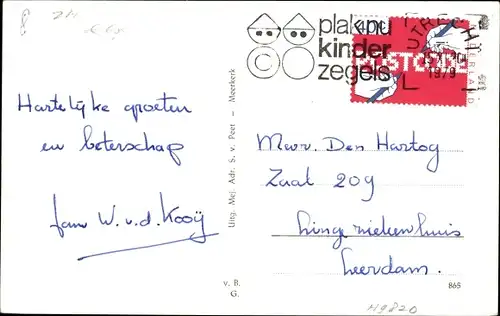 plak nu
kinder
zegels
UTRECHT
1979
NEDERLAND
Hartelijke groeten
en beterschap
fam W. v. d. Kooÿ
Uitg. Mej. Adr. S. v. Peer — Meerkerk
Mevr. Den Hartog
Zaal 209
Linge ziekenhuis
Leerdam.
v. B.
G.
865
H9820